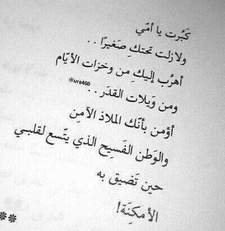 كَبُرت يا أمّي
ولازلت تحتكِ صَغيرًا . .
أهرُب إليكِ مِن وخزات الأيّام
ومن وَيلات القدَر . .
أؤمن بأنّك الملاذ الآمِن
والوَطن الفَسِيح الذي يتّسع لقلبي
حين تَضيق به
الأمكِنَة!
**